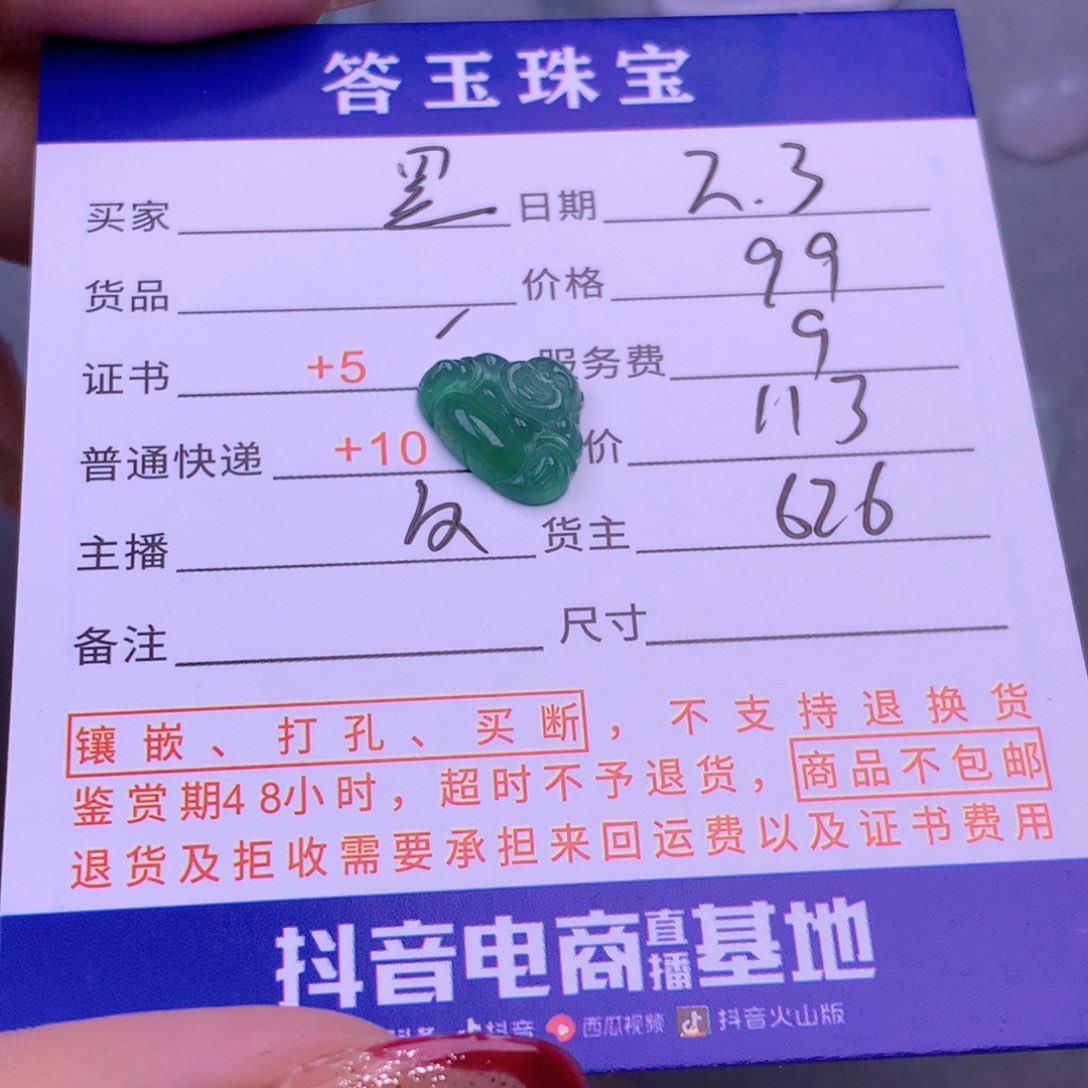 答玉珠宝
买家 黑 日期 2.3
货品 价格 99
证书 +5 服务费 9
普通快递 +10 价 113
主播 货主 626
备注 尺寸
镶嵌、打孔、买断，不支持退换货
鉴赏期48小时，超时不予退货，商品不包邮
退货及拒收需要承担来回运费以及证书费用
抖音电商直播基地
抖音 西瓜视频 抖音火山版